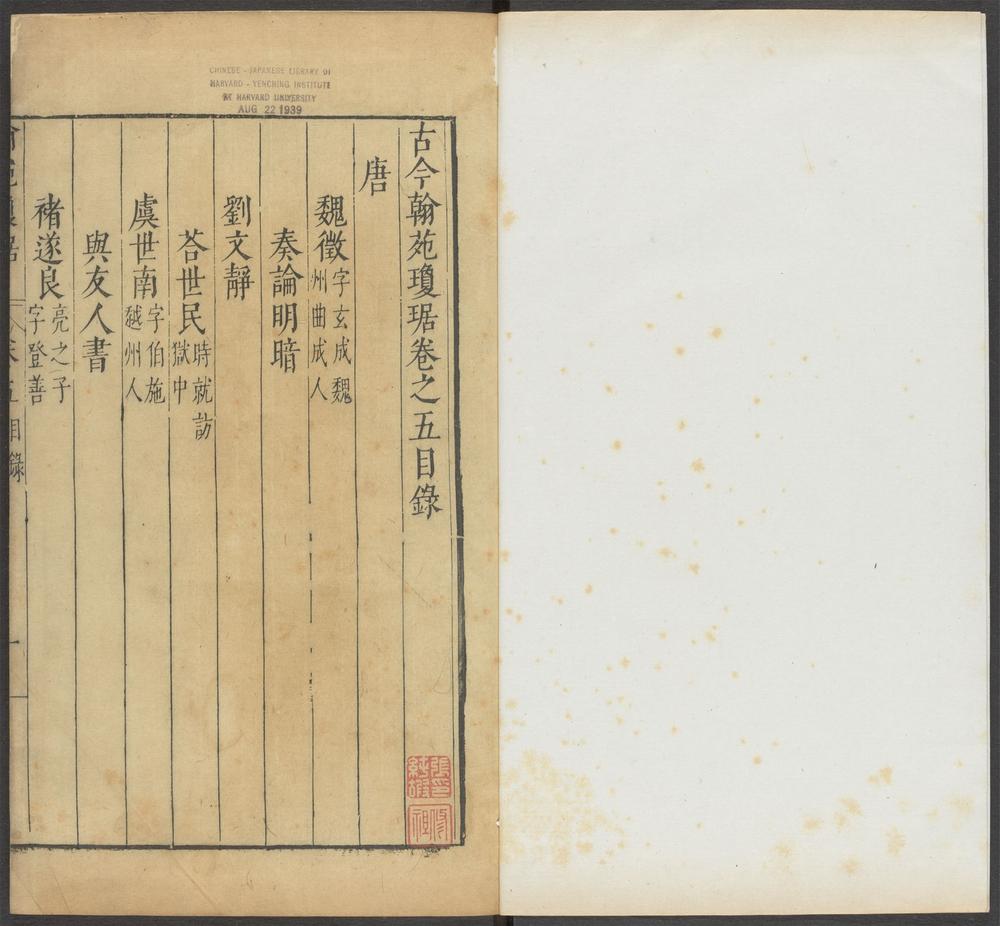 CHINESE - JAPANESE LIBRARY OF
HARVARD - YENCHING INSTITUTE
AT HARVARD UNIVERSITY
AUG 22 1939
古今翰苑瓊琚卷之五目錄
唐
魏徵 字玄成魏
州曲成人
奏論明暗
劉文靜
荅世民 時就訪
獄中
虞世南 字伯施
越州人
與友人書
褚遂良 亮之子
字登善
目錄
一